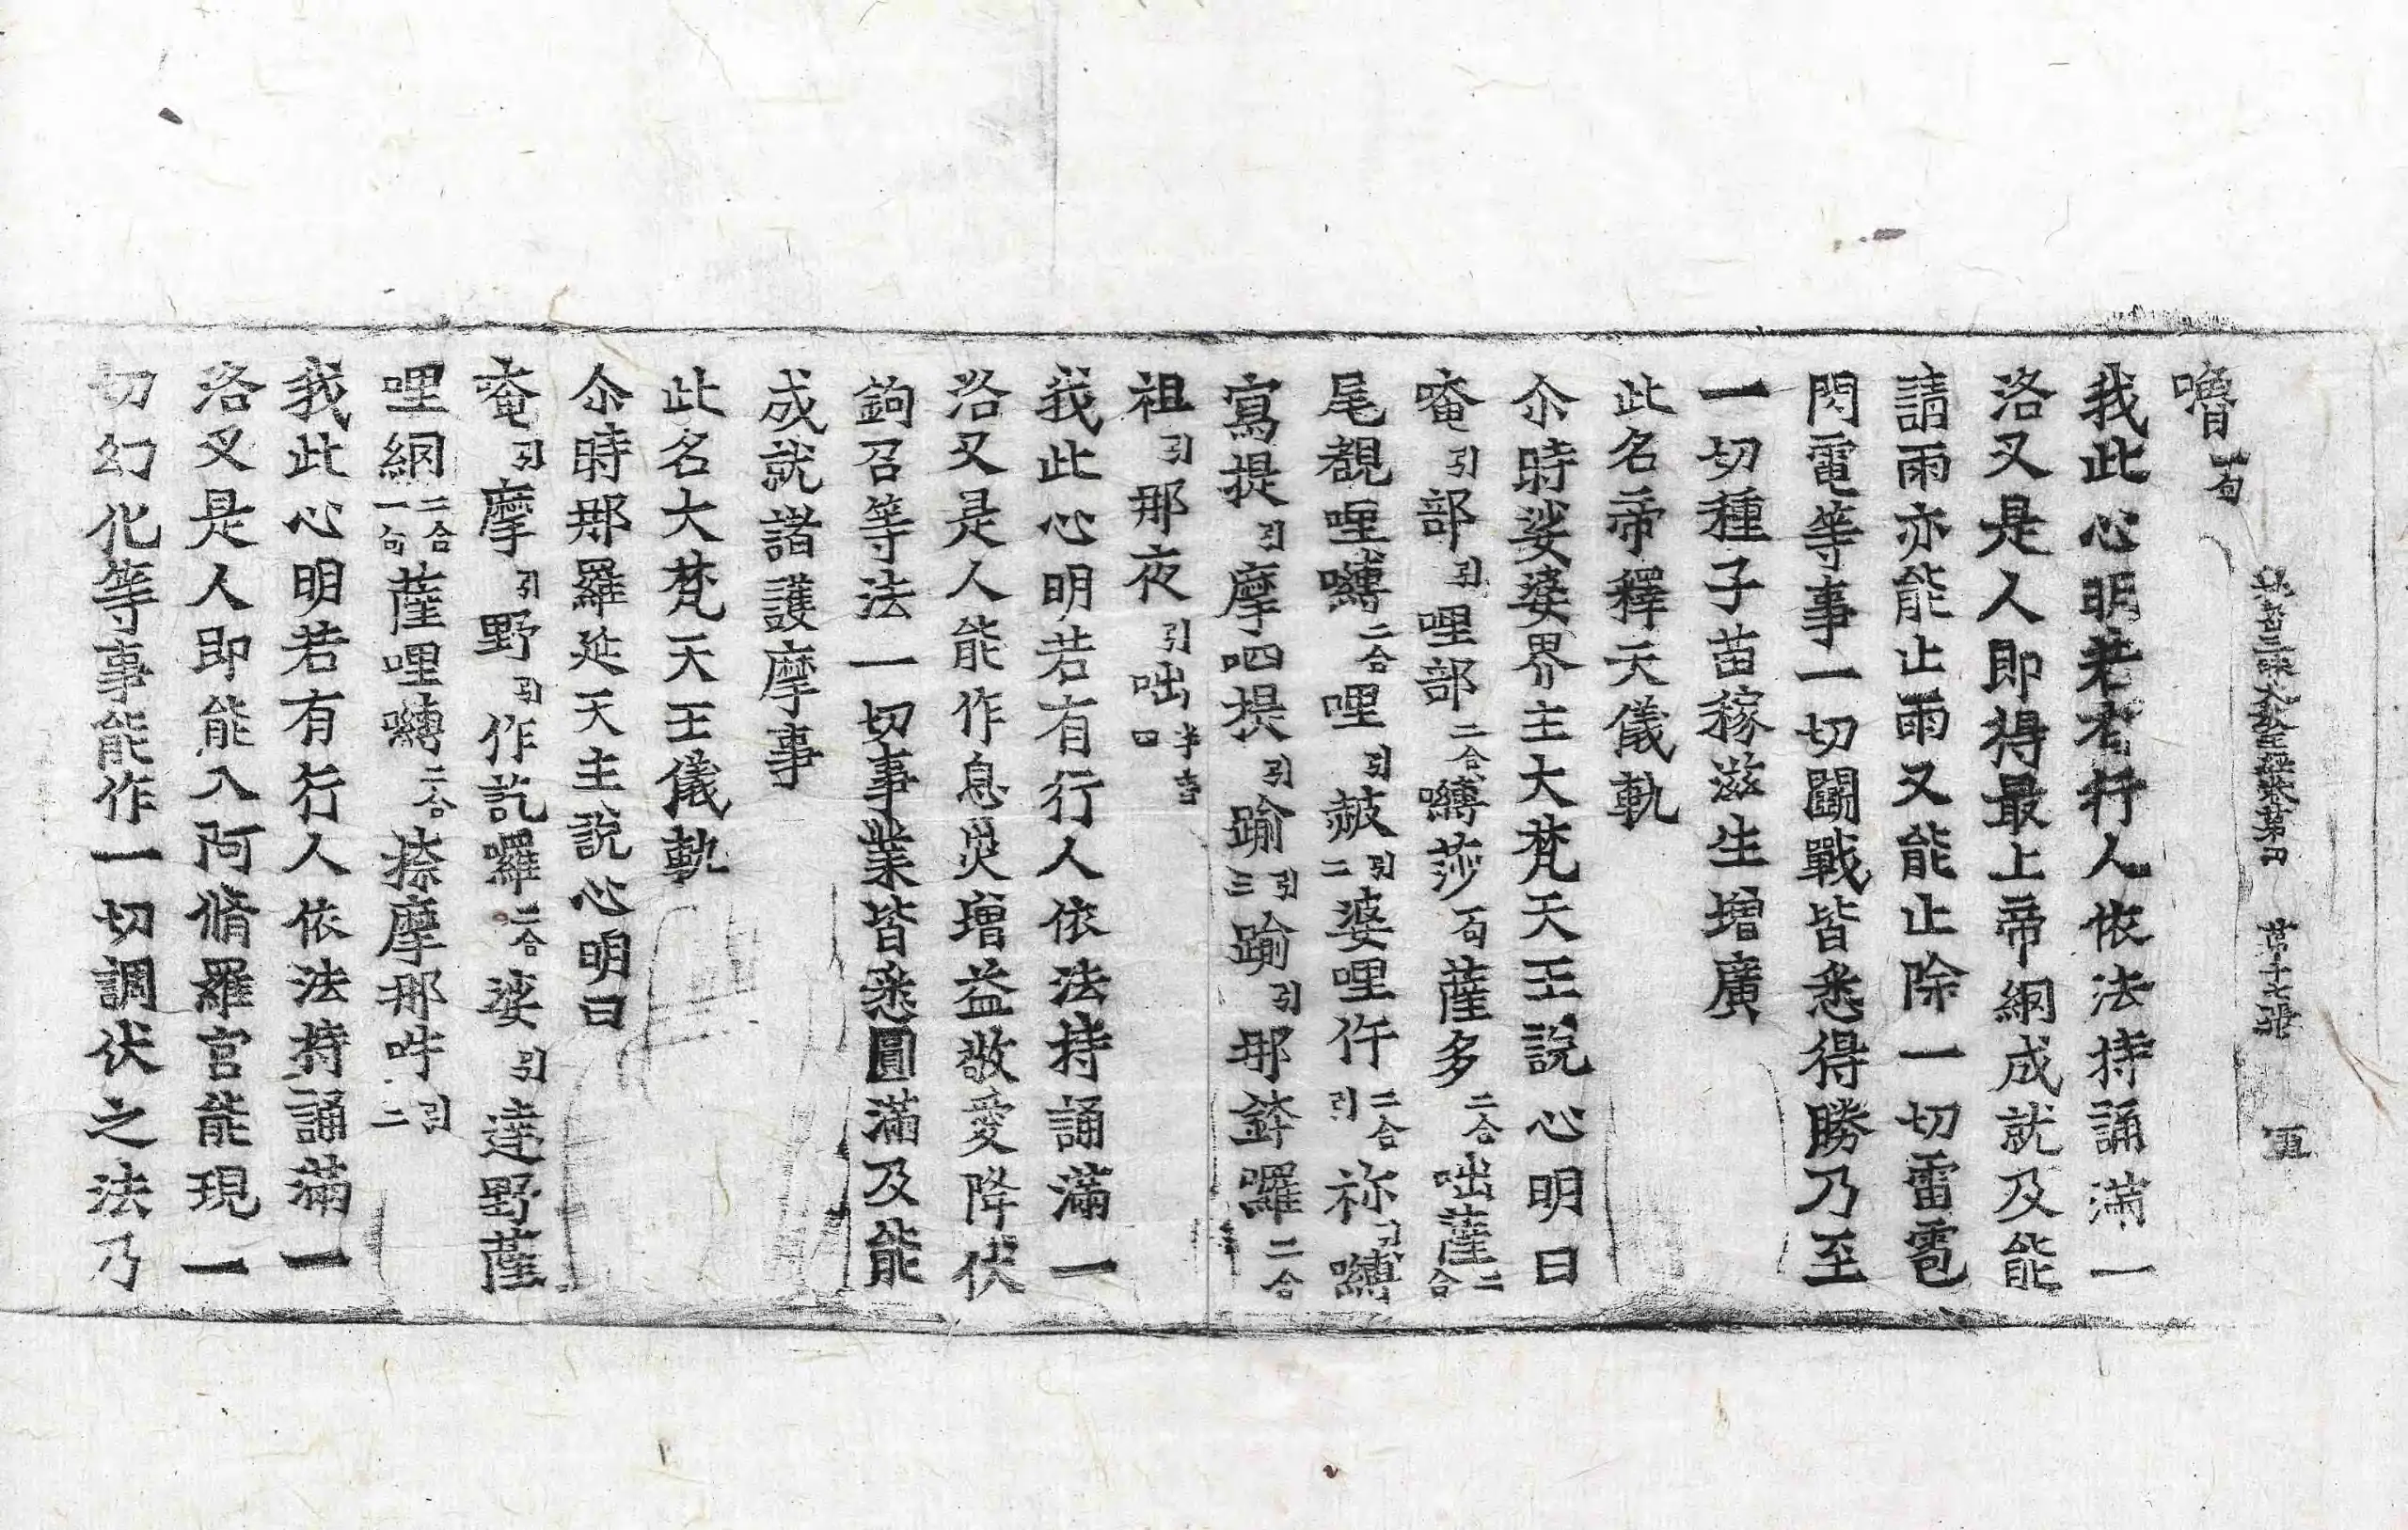 嚕一句
我此心明若有行人依法持誦滿一
洛叉是人即得最上帝網成就及能
請雨亦能止雨又能止除一切雷雹
閃電等事一切鬭戰皆悉得勝乃至
一切種子苗稼滋生增廣
此名帝釋天儀軌
尒時娑婆界主大梵天王說心明曰
唵引部引哩部二合嚩莎一句薩多二合咄薩二合
尾覩哩嚩二合哩引赦引二婆哩仵二合引祢引嚩
寫提引摩呬提引踰引三踰引那鉢囉二合
祖引那夜引咄半音四
我此心明若有行人依法持誦滿一
洛叉是人能作息災增益敬愛降伏
鉤召等法一切事業皆悉圓滿及能
成就諸護摩事
此名大梵天王儀軌
尒時那羅延天主說心明曰
奄引摩引野引作訖囉二合娑引達野薩
哩網二合一句薩哩嚩二合捺摩那吽引二
我此心明若有行人依法持誦滿一
洛叉是人即能入阿脩羅宮能現一
切幻化等事能作一切調伏之法乃
大教王經卷第四 第十七張